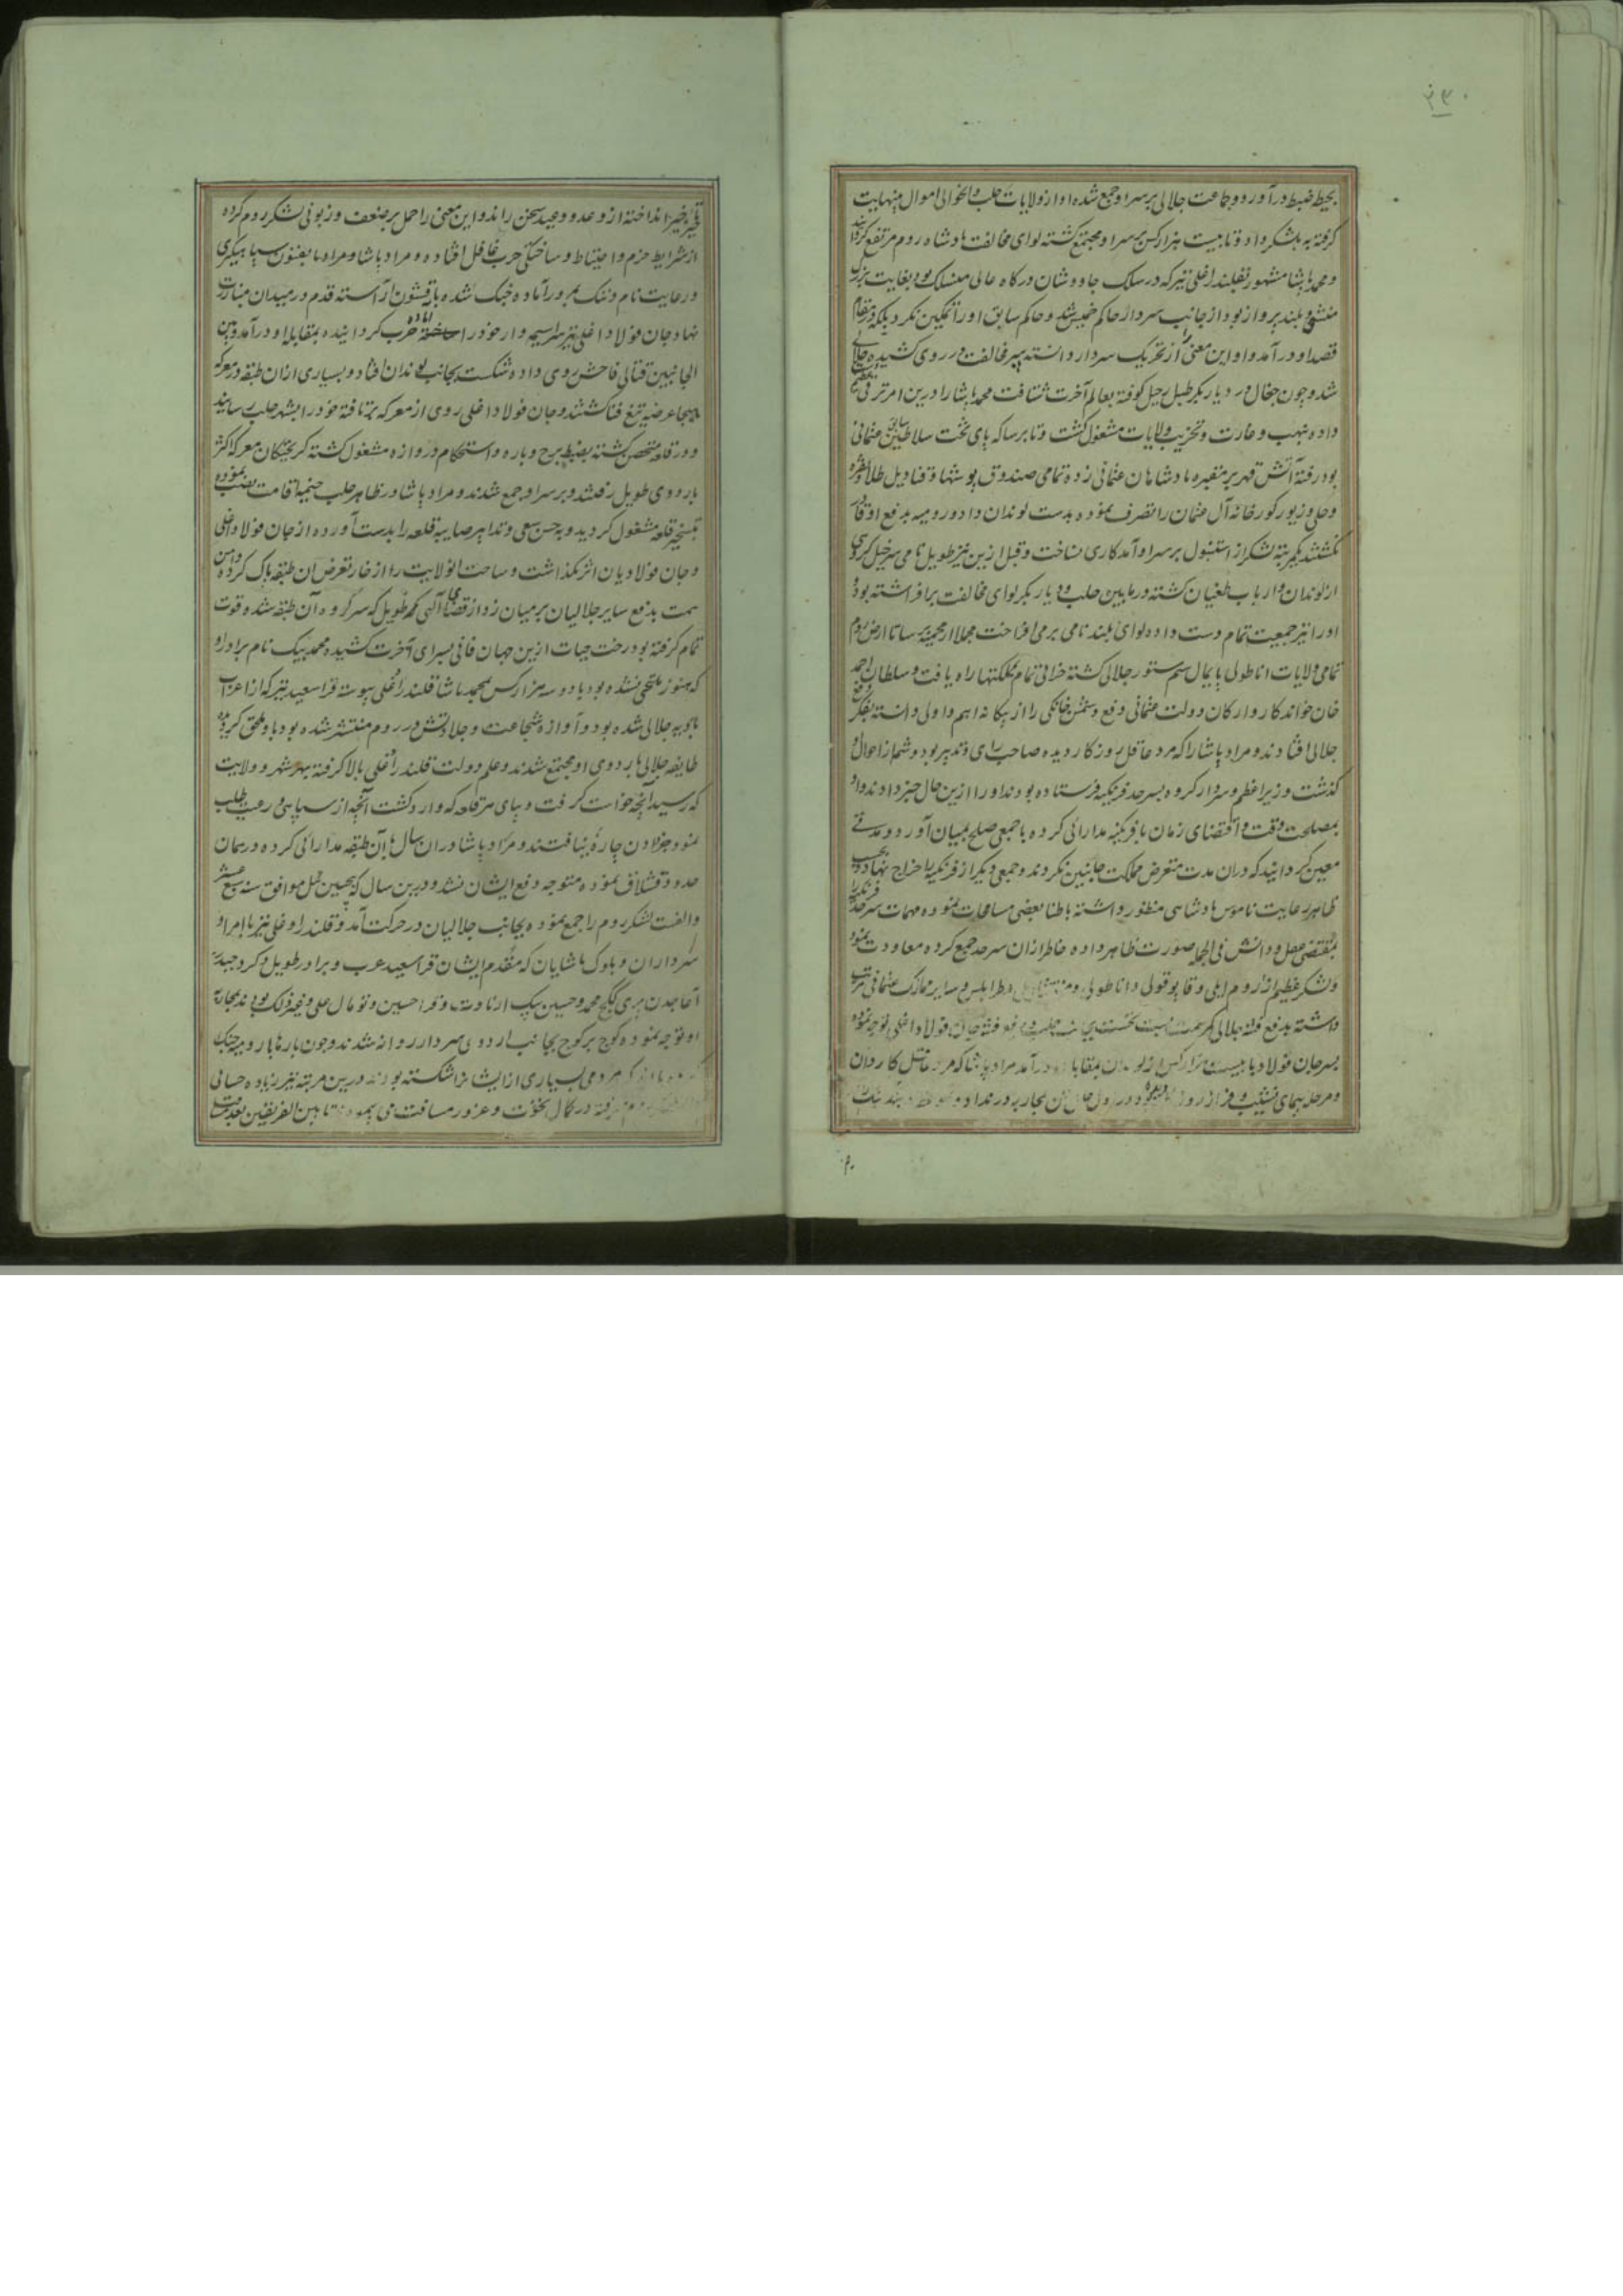 ۲۳۰
بحیطه ضبط درآورد و جماعت جلالی برسر او جمع شده او از ولایات حلب و آنحوالی اموال بینهایت
گرفته به لشکر داد و تا بیست هزار کس برسر او مجتمع گشته لوای مخالفت پادشاه روم مرتفع گردانید
و محمد پاشا مشهور بقلندر اغلی نیز که در سلک چاووشان درگاه عالی منسلک بود بغایت بزرگ
منش و بلند پرواز بود از جانب سردار حاکم شد و حاکم سابق او را تمکین نکرد بلکه در مقام
قصد او درآمد و او این معنی را از تحریک سردار دانسته سپر مخالفت در روی کشیده جلالی
شد و چون جغال در دیاربکر طبل رحیل کوفته بعالم آخرت شتافت محمد پاشا را درین امر ترقی
داده بنهب و غارت و تخریب ولایات مشغول گشت و تا برسا که پای تخت سلاطین سابق عثمانی
بود رفته آتش قهر بر مقبره پادشاهان عثمانی زده تمامی صندوق پوشها و قنادیل طلا و نقره
و حلی و زیور کورخانه آل عثمان را تصرف نموده بدست لوندان داد و رومیه بدفع او قادر
نگشتند یکمرتبه لشکر از استنبول برسر او آمد کاری نساخت و قبل ازین نیز طویل نامی سرخیل گروهی
از لوندان و ارباب طغیان گشته در مابین حلب و دیاربکر لوای مخالفت برافراشته بود و
او را نیز جمعیت تمام دست داده لوای بلند نامی برمی افراخت مجملا از محمیه برسا تا ارض روم
تمامی ولایات اناطولی پایمال سم ستور جلالی گشته خرابی تمام بملکتها راه یافت و سلطان احمد
خان خواندکار و ارکان دولت عثمانی دفع دشمن خانگی را از بیگانه اهم و اولی دانسته بفکر دفع
جلالی افتادند و مراد پاشا را که مرد عاقل روزگار دیده صاحب رای و تدبیر بود و شمه از احوال او
گذشت وزیر اعظم و سردار کرده بسرحد فرنگیه فرستاده بودند او را ازین حال خبر دادند و او
بمصلحت وقت و اقتضای زمان با فرنگیه مدارائی کرده با جمعی صلح بمیان آورد و مدتی
معین گردانید که دران مدت متعرض مملکت جانبین نگردند و جمعی دیگر از فرنگیه را خراج نهاد و بحسب
ظاهر رعایت ناموس پادشاهی منظور داشته باطنا بعضی مسامحات نموده مهمات سرحد فرنگیه را
بمقتضی عقل و دانش فی الجمله صورت ظاهر داده خاطر ازان سرحد جمع کرده معاودت نمود
و لشکر عظیم از روم ایلی و قاپوقولی و اناطولی و طرابلس و سایر ممالک عثمانی مرتب
داشته بدفع فتنه جلالی کمر همت بست نخست بجانب حلب و دفع فتنه جان فولاد اغلی توجه نموده
پسر جان فولاد با بیست هزار کس از لوندان بمقابله درآمد مراد پاشا که مرد عاقل کاردان
و مرحله پیمای نشیب و فراز روزگار دیده بود در اول حال آن محاربه در
بتأخیر انداخته از وعد و وعید سخن راند و این معنی را حمل بر ضعف و زبونی لشکر روم کرده
از شرایط حزم و احتیاط و ساختگی حرب غافل افتاده و مراد پاشا و مراد ما بفنون سپاهیگری
و رعایت نام و ننگ آماده جنگ شده با قشون آراسته قدم در میدان مبارزت
نهاد جان فولاد اغلی نیز سراسیمه وار خود را آماده حرب گردانیده بمقابله او درآمد و بین
الجانبین قتالی فاحش روی داده شکست بجانب لوندان افتاد و بسیاری ازان طبقه در معرکه
هیجا عرضه تیغ فنا گشتند و جان فولاد اغلی روی از معرکه برتافته خود را بشهر حلب رسانید
و در قلعه متحصن گشته بضبط برج و باره و استحکام دروازه مشغول گشته گریختگان معرکه اکثر
باردوی طویل رفتند و برسر او جمع شدند و مراد پاشا در ظاهر حلب خیمه اقامت نصب نموده
بتسخیر قلعه مشغول گردید و به حسن سعی و تدابیر صایبه قلعه را بدست آورده از جان فولاد اغلی
و جان فولادیان اثر نگذاشت و ساحت آنولایت را از خار تعرض آن طبقه پاک کرده دامن
همت بدفع سایر جلالیان بر میان زد از قضای الهی محمد طویل که سرگروه آن طبقه شده قوت
تمام گرفته بود رخت حیات ازین جهان فانی بسرای آخرت کشیده محمد بیک نام برادر او
که هنوز ملتحی نشده بود با دو سه هزار کس بمحمد پاشا قلندر اغلی پیوسته قرا سعید نیز که از اعراب
بادیه جلالی شده بود و آوازه شجاعت و جلادتش در روم منتشر شده بود باو ملحق گردید
طایفه جلالی باردوی او مجتمع شدند و علم دولت قلندر اغلی بالا گرفته بهر شهر و ولایت
که رسید آنچه خواست گرفت و بپای هر قلعه که وارد گشت آنچه از سپاهی و رعیت طلب
نمود جز دادن چاره نیافتند و مراد پاشا دران سال با آن طبقه مدارائی کرده در همان
حدود قشلاق نموده متوجه دفع ایشان نشد و درین سال که پیچین ئیل موافق سنه سبع عشر
و الفست لشکر روم را جمع نموده بجانب جلالیان در حرکت آمد و قلندر اوغلی نیز با امراء و
سرداران و بلوک باشیان که مقدم ایشان قرا سعید عرب و برادر طویل و کرد حیدر و
آغاجدن پیری و کلج محمد و حسین بیک ارناودت و قرا حسین و تومال علی و غیر ذلک بودند بمحاربه
او توجه نموده کوچ بر کوچ بجانب اردوی سردار روانه شدند و چون بارها با رومیه جنگ
مردمی بسیاری از ایشان شکسته بودند درین مرتبه نیز زیاده حسابی
در کمال نخوت و غرور مسافت می پیمودند تا بین الفریقین بعد مسافت